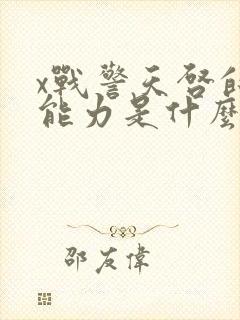 x戰警天啓的
能力是什麼
邵友偉